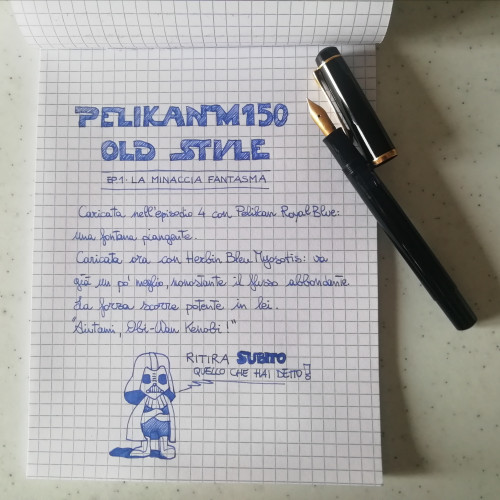 PELIKAN M150
OLD STYLE
EP.1 - LA MINACCIA FANTASMA
Caricata nell'episodio 4 con Pelikan Royal Blue:
una fontana piangente.
Caricata ora con Herbin Bleu Myosotis: va
già un po' meglio, nonostante il flusso abbondante.
La forza scorre potente in lei.
"Aiutami, Obi-Wan Kenobi!"
RITIRA SUBITO
QUELLO CHE HAI DETTO!